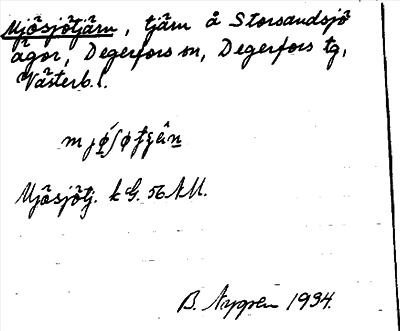 Mjösjötjärn, tjärn å Storsandsjö
ägor, Degerfors sn, Degerfors tg,
Västerb. l.
Mjösjötj. k G. 56 NU.
B. Nygren 1934.